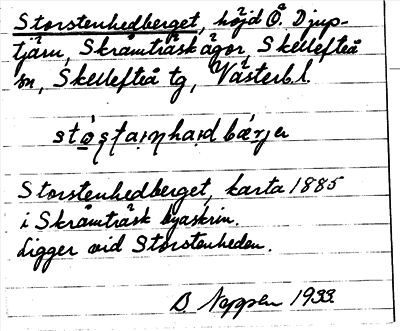 Storstenhedberget, höjd Ö. Djup-
tjärn, Skråmträskågor Skellefteå
sn, Skellefteå tg, Västerb.l.
Storstenhedberget, karta 1885
i Skråmträsk byaskrin.
Ligger vid Storstenheden.
D. 1933.